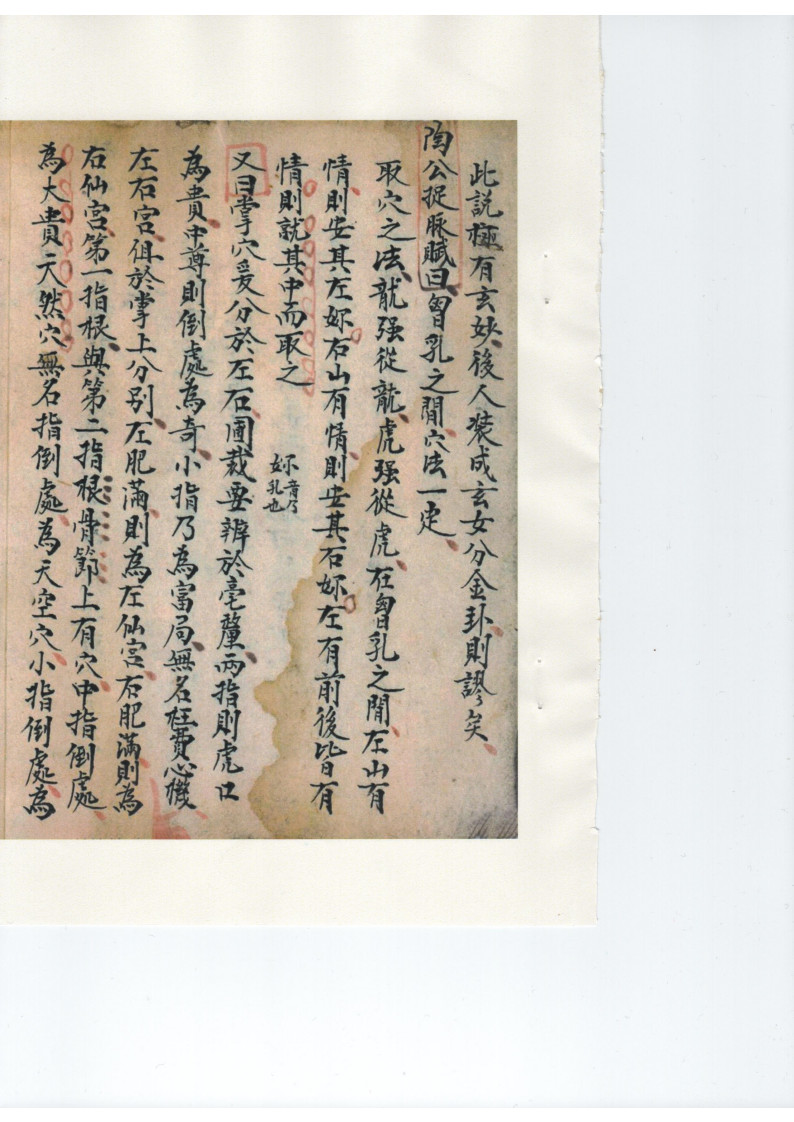 此說極有玄妙後人裝成玄女分金卦則謬矣
陶公捉脉賦曰胷乳之間穴法一定
取穴之法龍强從龍虎强從虎在胷乳之間左山有
情則安其左妳右山有情則安其右妳左有前後皆有
情則就其中而取之
妳音乃
乳也
又曰掌穴爰分於左右圖裁要辨於毫釐兩指則虎口
為貴中尊則倒處為奇小指乃為富局無名枉費心機
左右宮俱於掌上分别左肥滿則為左仙宮右肥滿則為
右仙宮第一指根與第二指根骨節上有穴中指倒處
為大貴天然穴無名指倒處為天空穴小指倒處為